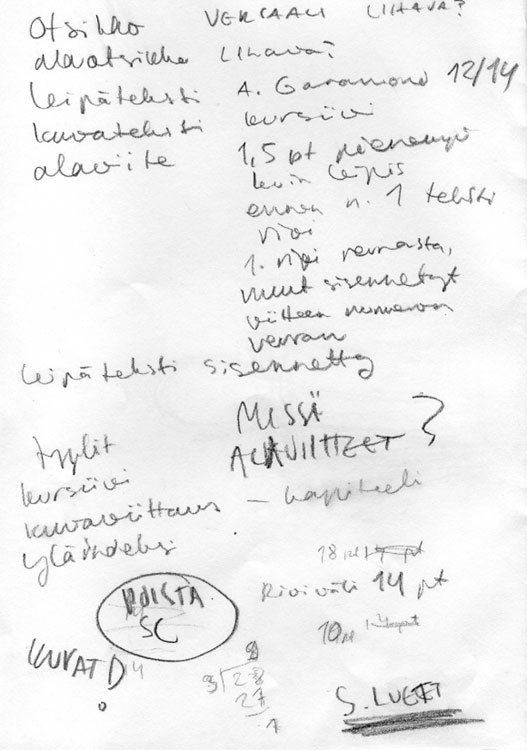 Otsikko VERSAALI LIHAVA?
alaotsikko LIHAVA?
leipäteksti A. Garamond 12/14
kuvateksti kursiivi
alaviite 1,5 pt pienempi
kuin leipis
ennen n. 1 teksti
rivi
1. rivi reunasta,
muut sisennetyt
viitteen numeron
verran
leipäteksti sisennetty
MISSÄ
ALAVIITTEET?
tyylit
kursiivi
kuvaviittaus – kapiteeli
yläindeksi
18
Riviväli 14 pt
POISTA
SC
10
KUVAT D 4
3√28
27
1
S. LUETT